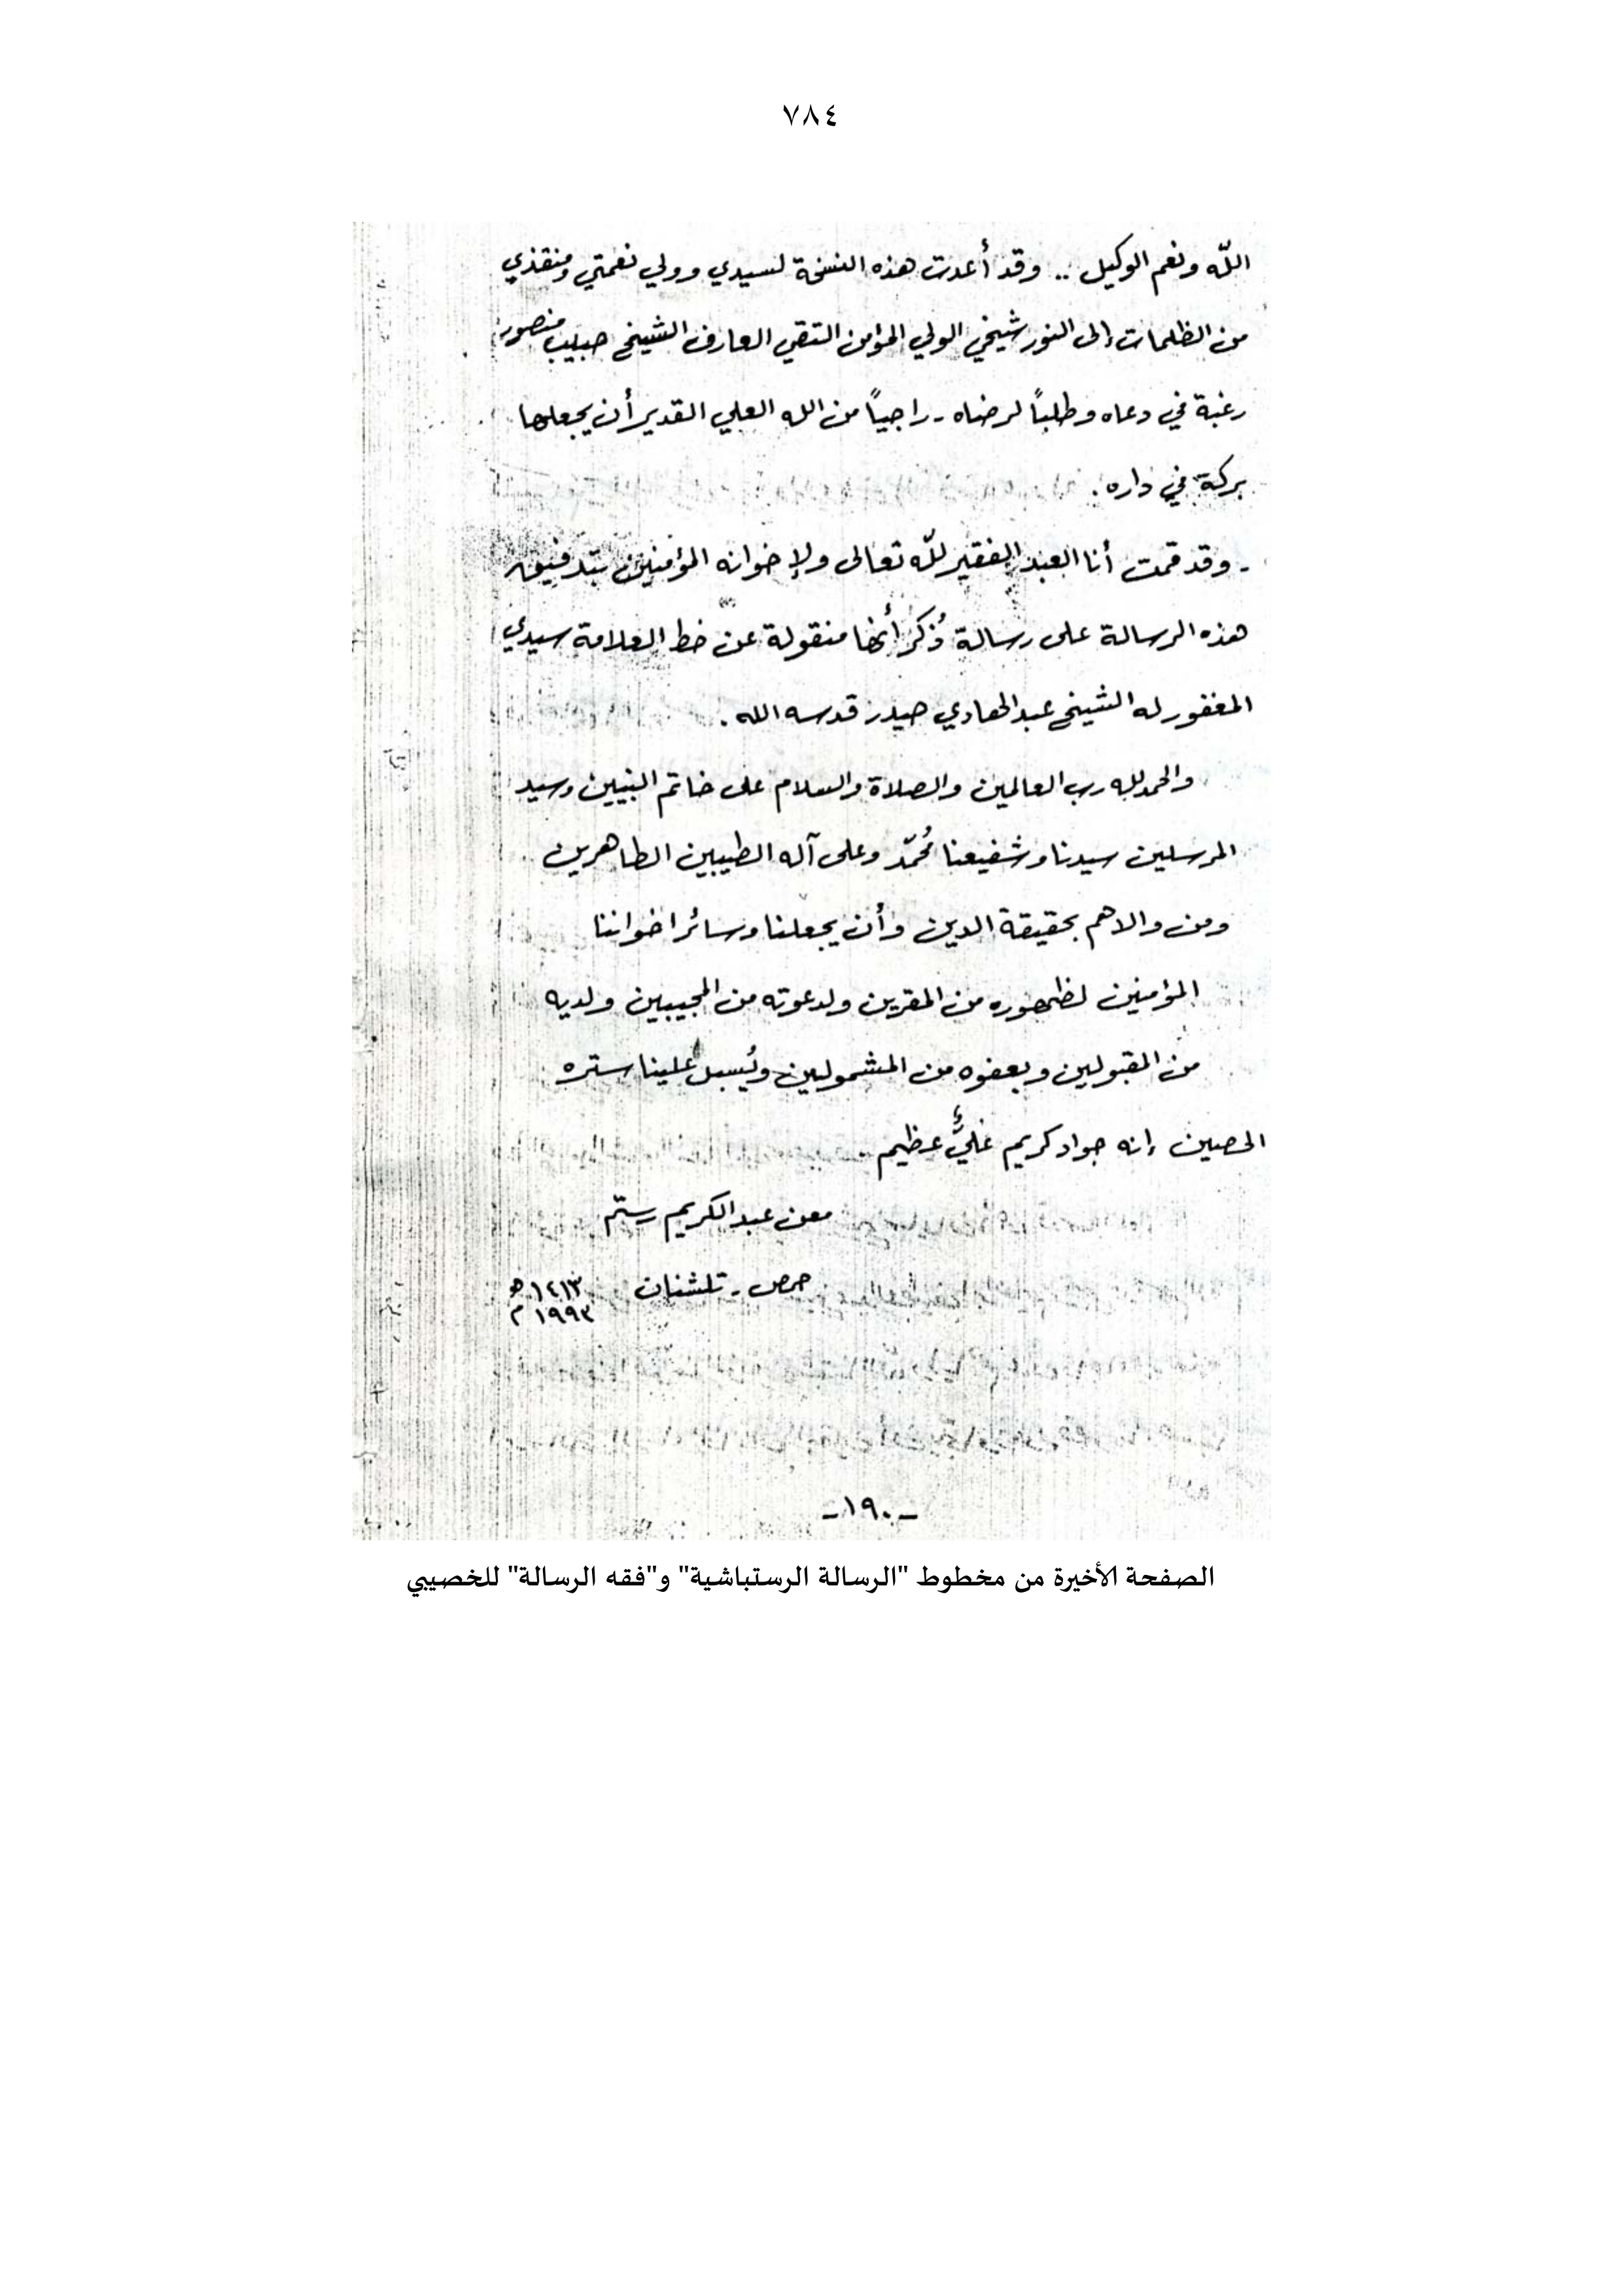 ٧٨٤
اللّه ونعم الوكيل .. وقد أعدت هذه النسخة لسيدي وولي نعمتي ومنقذي
من الظلمات إلى النور شيخي الولي المؤمن التقي العارف الشيخ حبيب منصور
رغبة في دعاه وطلباً لرضاه - راجياً من الله العلي القدير أن يجعلها
بركة في داره .
- وقد قمت أنا العبد الفقير للّه تعالى ولإخوانه المؤمنين بتدقيق
هذه الرسالة على رسالة ذُكر أنها منقولة عن خط العلامة سيدي
المغفور له الشيخ عبد الهادي حيدر قدسه الله .
والحمد لله رب العالمين والصلاة والسلام على خاتم النبيين وسيد
المرسلين سيدنا وشفيعنا مُحمّد وعلى آله الطيبين الطاهرين
ومن والاهم بحقيقة الدين وأن يجعلنا وسائر اخواننا
المؤمنين لظهوره من المقرين ولدعوته من المجيبين ولديه
من المقبولين وبعفوه من المشمولين ويُسبل علينا ستره
الحصين إنه جواد كريم عليٌّ عظيم .
معن عبد الكريم رستم
حمص - تلشنان ١٤١٣ هـ
١٩٩٣ م
- ١٩٠ -
الصفحة الأخيرة من مخطوط "الرسالة الرستباشية" و"فقه الرسالة" للخصيبي